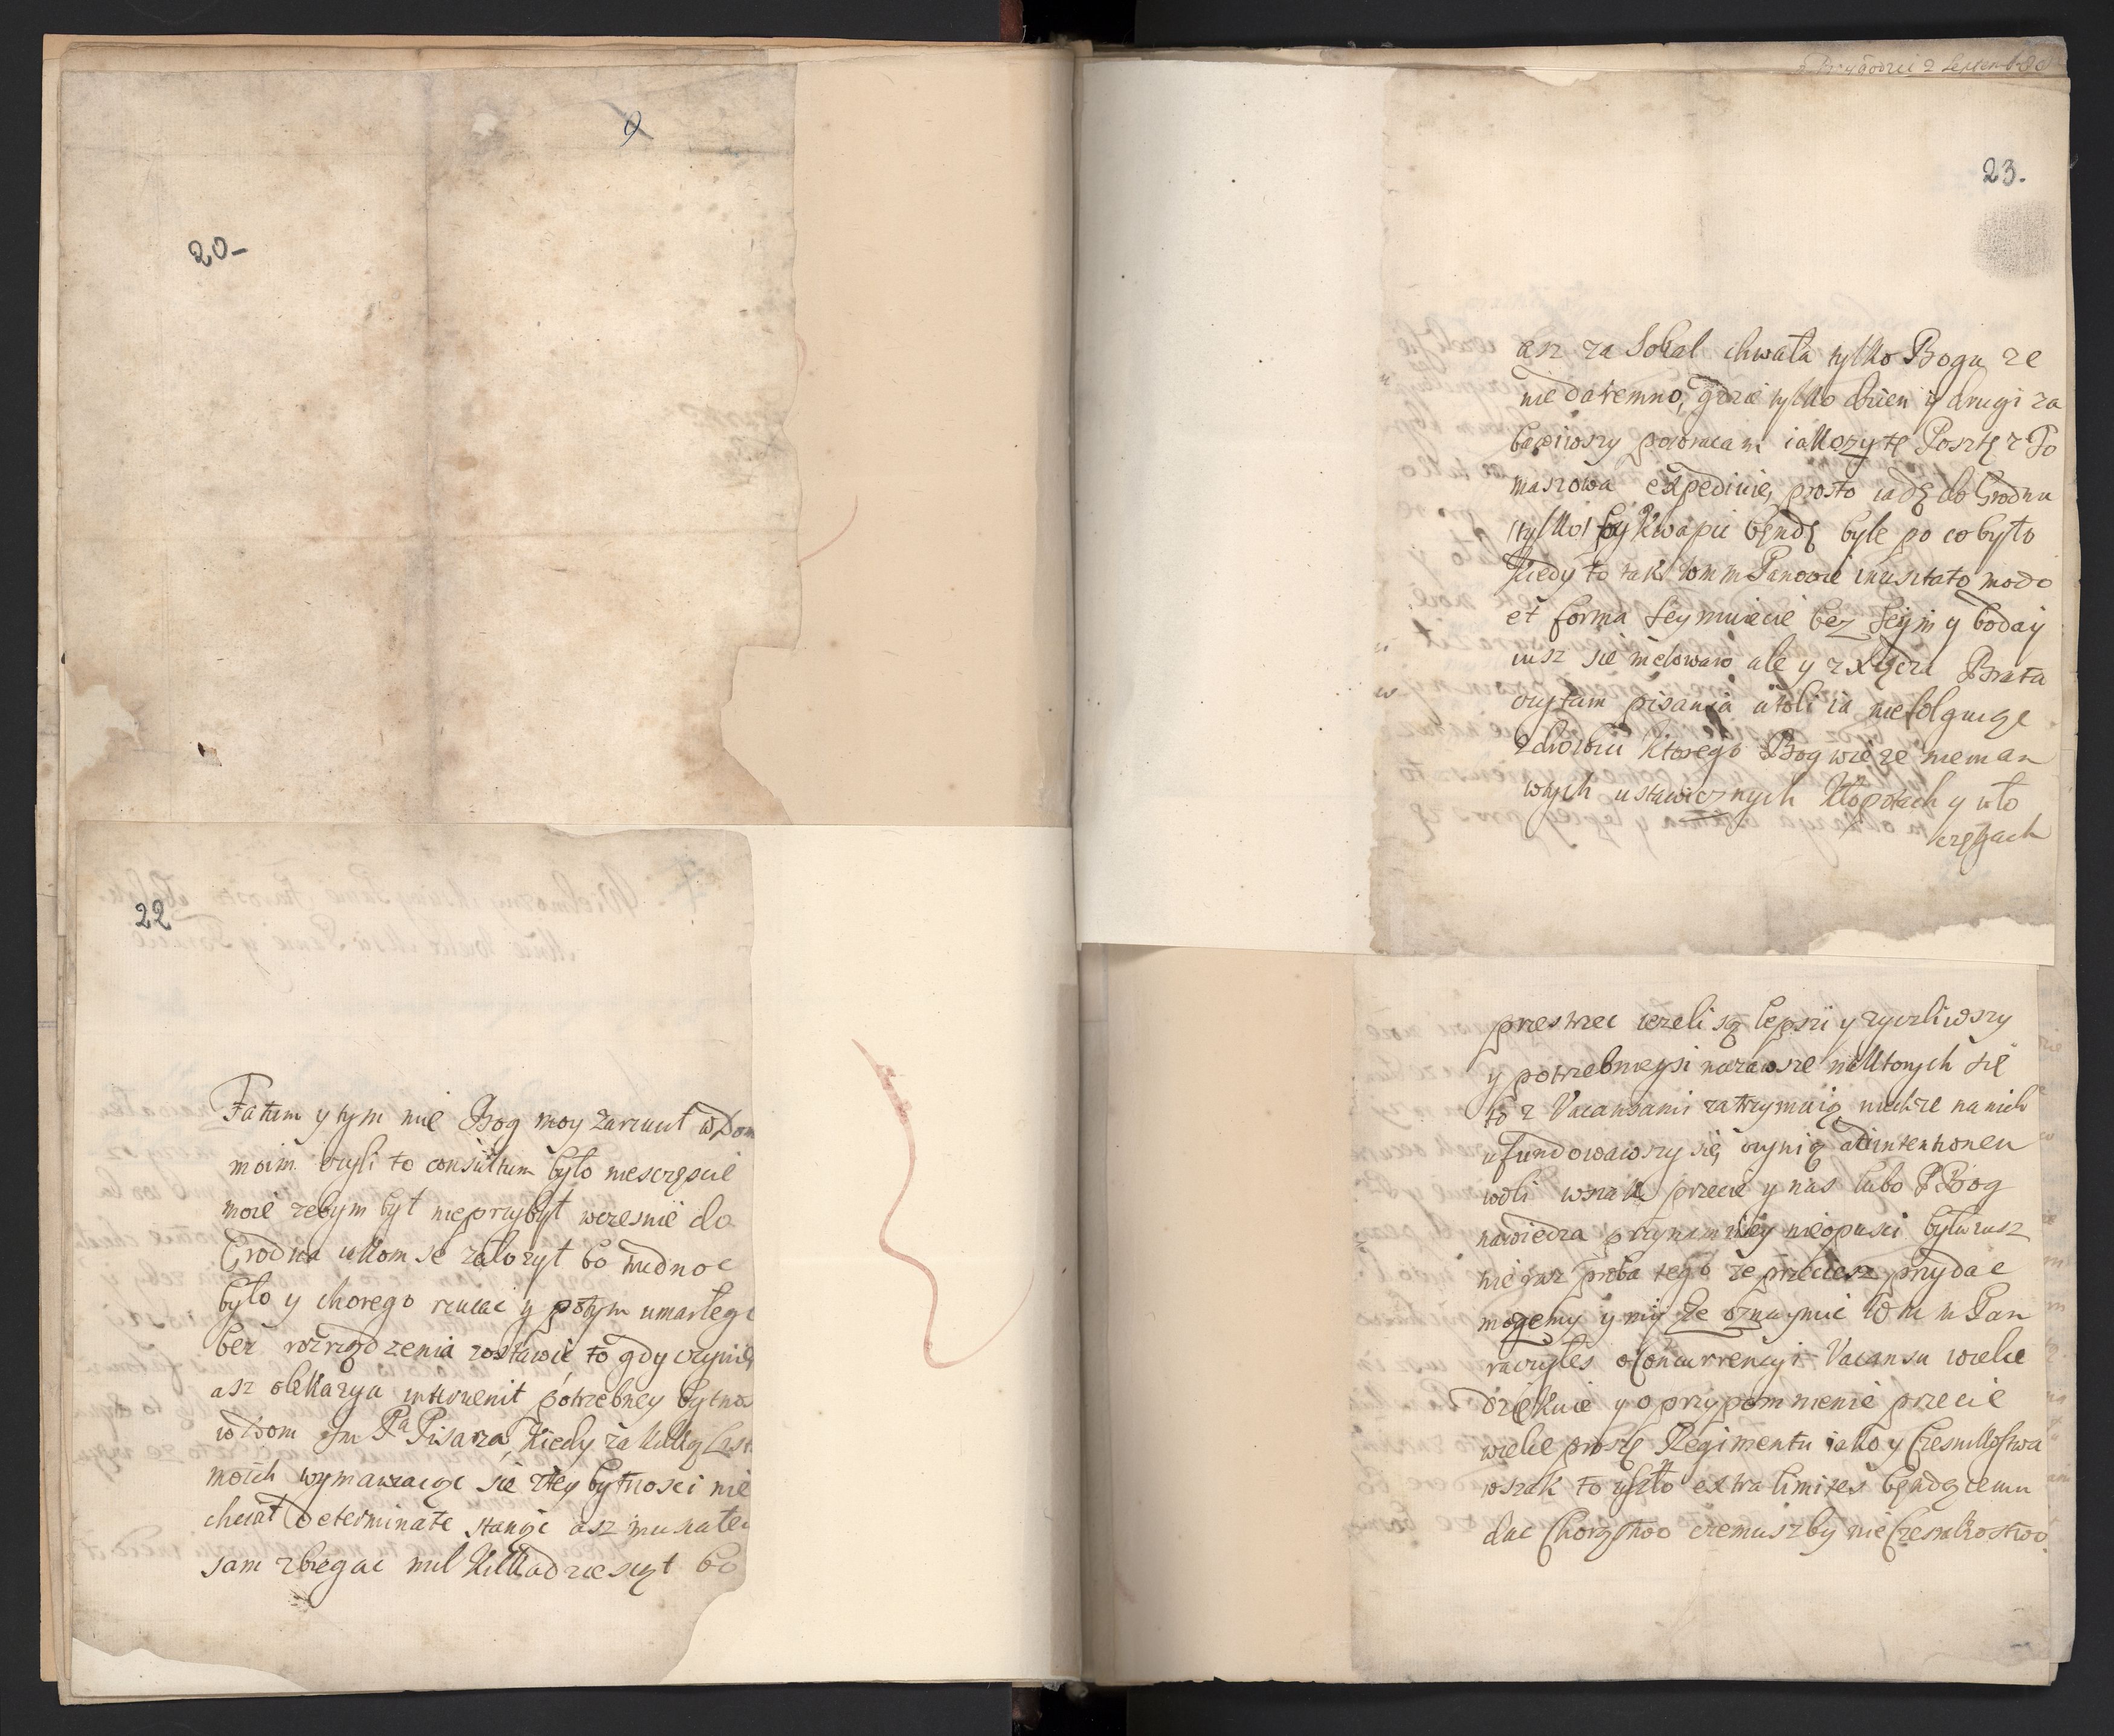 9
20-
22
Fatum y tym mie Bog moy zarzucił w Dom
moim czyli to consultum było niesczęscie
moie zebym był nieprzybył wczesnie do
Grodna iakom se załozył bo trudno
było y chorego rzucac y potym umarłego
bez rozrządzenia zostawic to gdy czynię
asz okkazya intervenit potrzebney bytno
w Dom Jm Pa Pisarza, kiedy za kilką List
moich wymawiaiąc się z tey bytnosci nie
chciał determinate stanąc asz musiałe
sam zbiegac mil kilkadziesiąt bo
23.
asz za Sokal chwała tylko Bogu ze
nie daremno, gdzie tylko dzien y drugi za
bawiwszy powracam iakoszy tę Posztę z To
maszowa expediuię, prosto iadę do Grodna
tylko kwapic będę byle po co było
kiedy to tak wm m Panowie inusitato modo
et forma seymuiecie bez seym y boday
iusz sie nielowawo ale y z Xiącia Brata
czytam pisania atoli ia niefolguię
zdrowiu ktorego Bog wie ze nie mam
w tych ustawicznych kłopotach y wło
częgach
przestrzec iezeli są lepszi y zyczliwszy
y potrzebnieysi na zawsze na ktorych się
to z Vacansami zatrzymaią niechze na nich
ufundowawszy się, czynią ad intentionem
woli wszak przecie y nas lubo P Bog
nawiedza przynamniey nieopusci była iusz
nie iusz proba tego ze przeciesz przydac
mozemy y my ze oznaymic W m m Pan
raczyłes o Concurrencyi Vacansu wielce
dziękuie y o przypomnienie przecie
wielce proszę Regimentu iako y Czesnikostwa
wszak to uszło extra limites będącemu
dac Chorąstwo czemuszby nie Czesnikostwo.